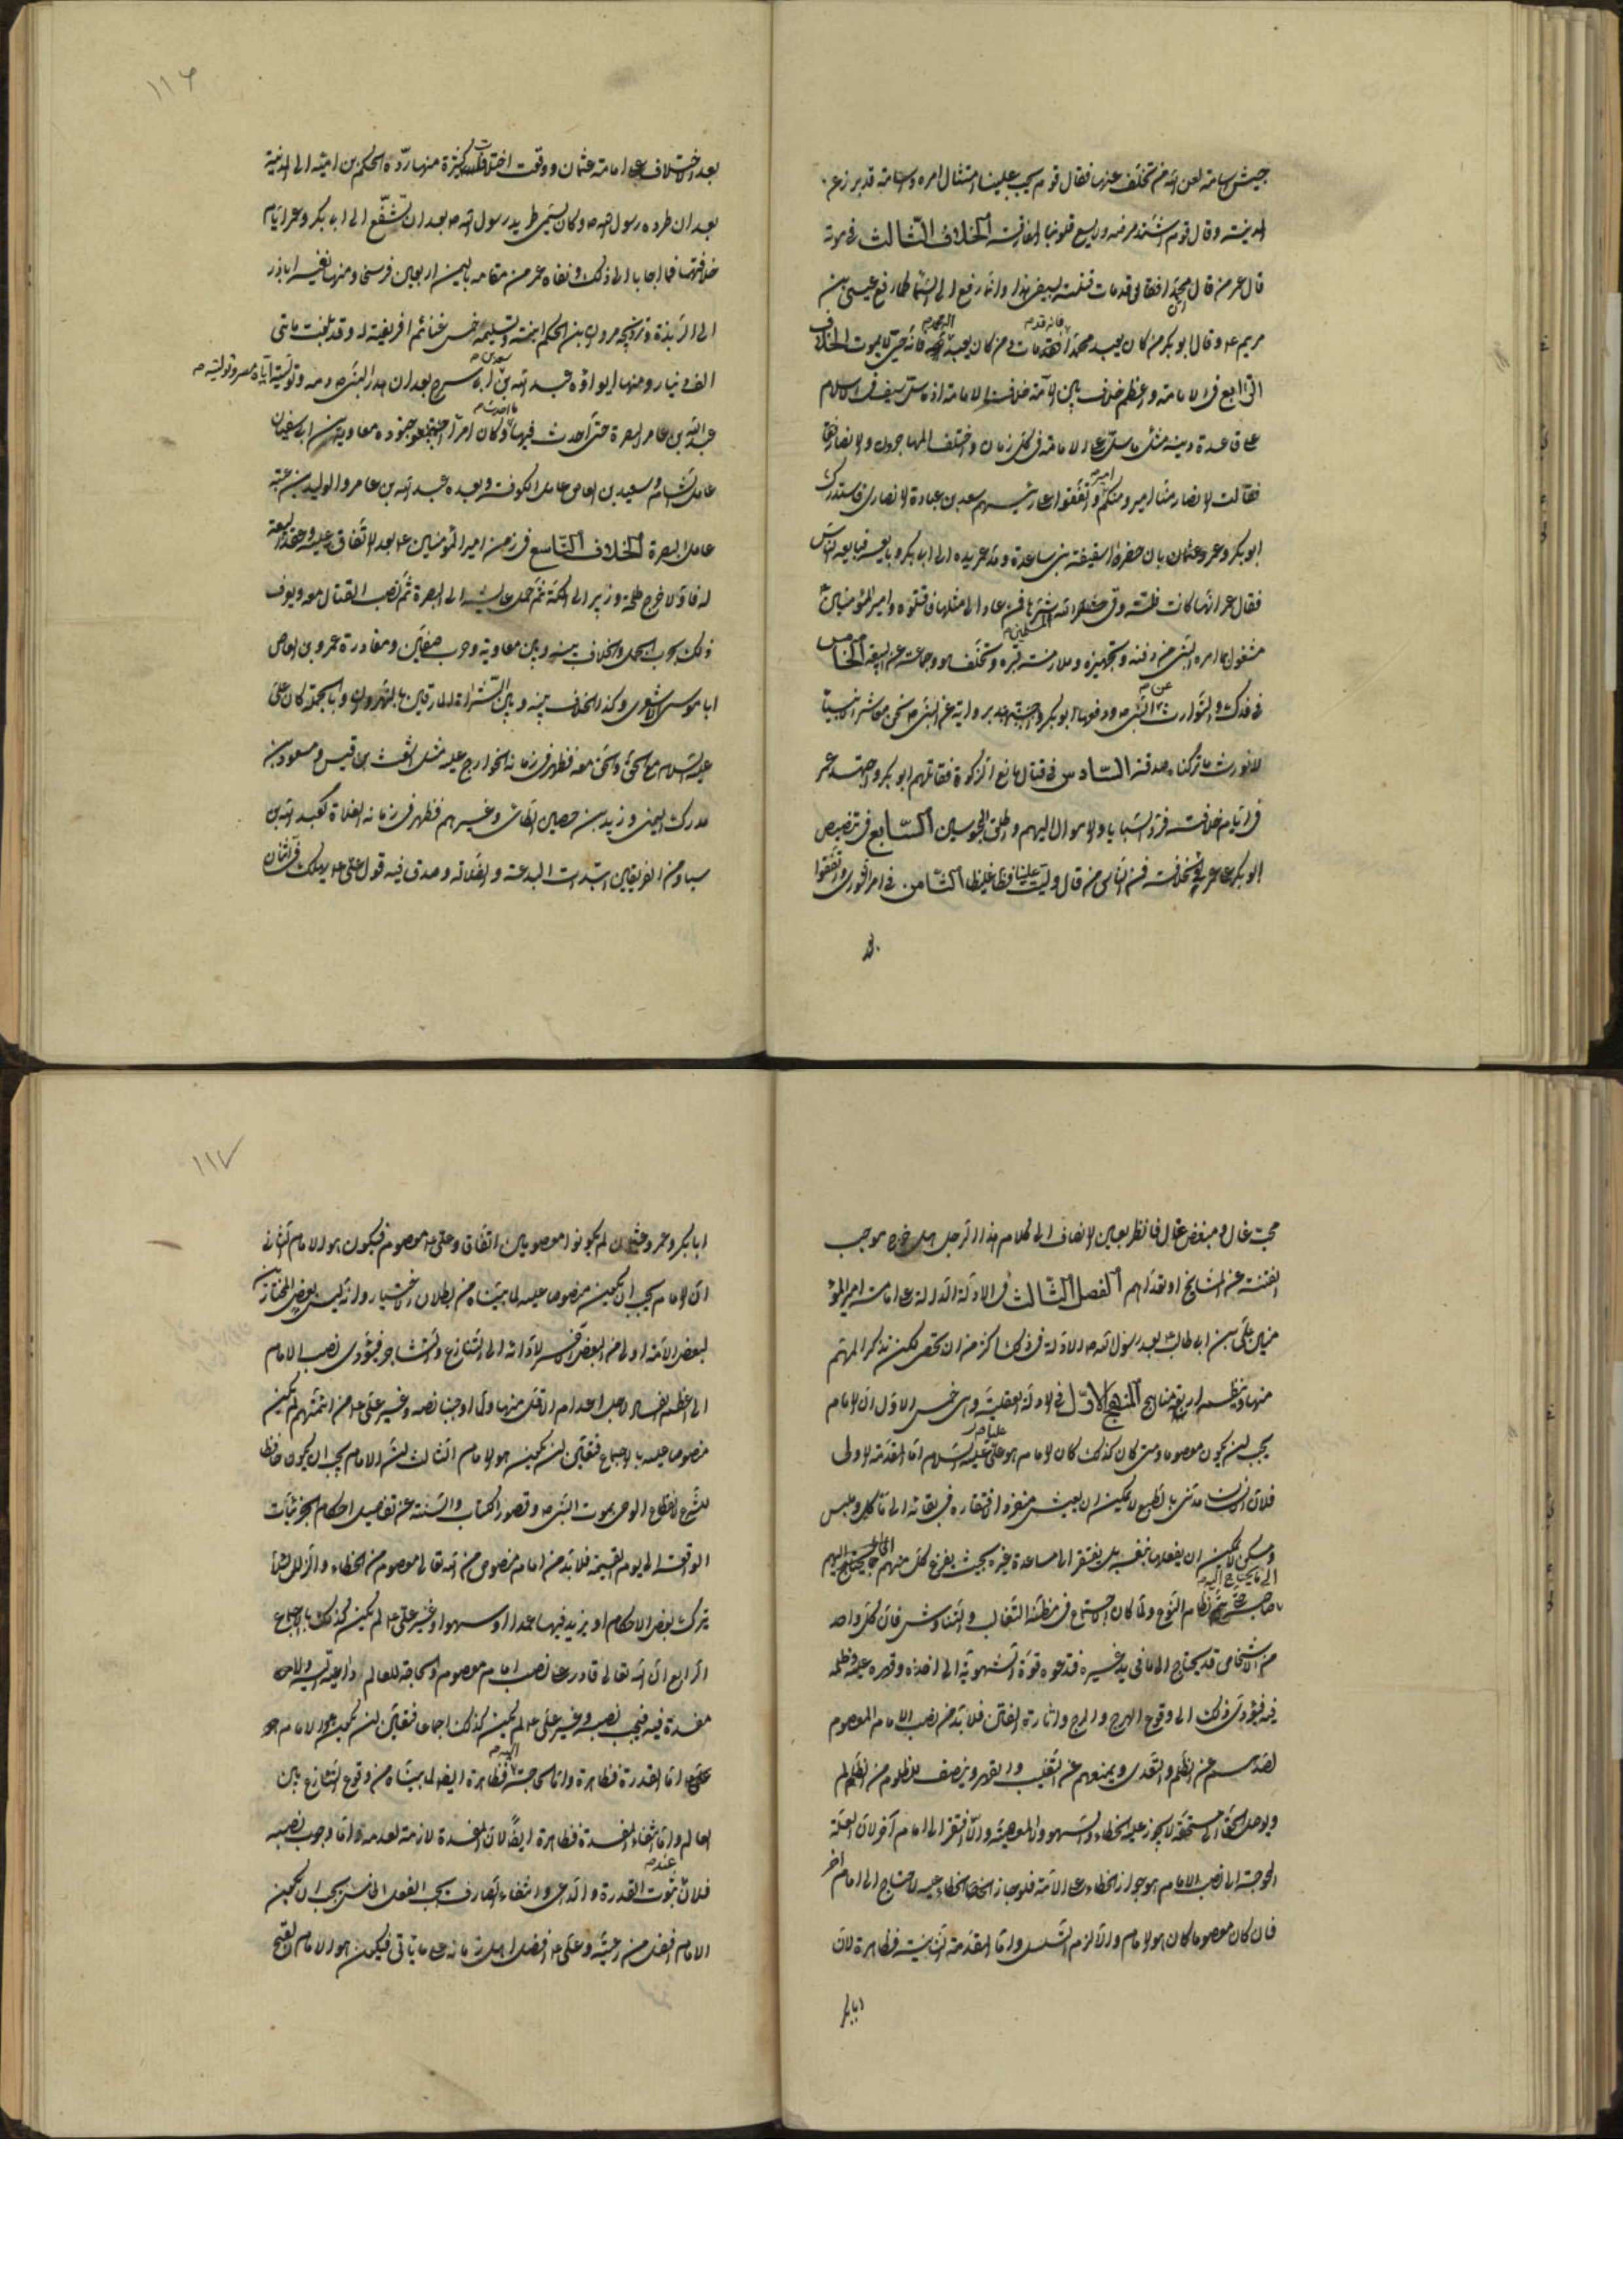 جيش اسامة لعن الله من تخلف عنها فقال قوم يجب علينا امتثال امره واسامة قد برز عن
المدينة وقال قوم اشتد مرضه ولا يسع قلوبنا المفارقة الخلاف الثالث في موته
قال عمر من قال ان محمدا قد مات قتلته بسيفي هذا وانما رفع الى السماء كما رفع عيسى بن
مريم ع وقال ابو بكر من كان يعبد محمدا فانه قد مات ومن كان يعبد اله محمد فانه حي لا يموت الخلاف
الرابع في الامامة واعظم خلاف بين الامة خلاف الامامة اذ ما سل سيف في الاسلام
على قاعدة دينية مثل ما سل على الامامة في كل زمان واختلف المهاجرون والانصار
فقالت الانصار منا امير ومنكم امير واتفقوا على رئيسهم سعد بن عبادة الانصاري فاستدرك
ابو بكر وعمر وعثمان بان حضروا سقيفة بني ساعدة ومد عمر يده الى ابي بكر وبايعه فبايعه الناس
فقال عمر انها كانت فلتة وقى الله شرها فمن عاد الى مثلها فاقتلوه وامير المؤمنين ع
مشغول بما امره النبي من دفنه وتجهيزه وملازمة قبره وتخلف هو وجماعة عن البيعة الخامس
في فدك والتوارث عن النبي ص ودفعها ابو بكر بروايته عن النبي ص نحن معاشر الانبياء
لا نورث ما تركناه صدقة السادس في قتال مانعي الزكوة فقاتلهم ابو بكر واجتهد عمر
في ايام خلافته فرد السبايا والاموال اليهم واطلق المحبوسين السابع في تنصيص
ابو بكر على عمر بالخلافة فمن الناس من قال وليت علينا فظا غليظا الثامن في امر الشورى واتفقوا
بعد
١١٦
بعد الاختلاف على امامة عثمان ووقعت اختلافات كثيرة منها رده الحكم بن امية الى المدينة
بعد ان طرده رسول الله ص وكان يسمى طريد رسول الله ص بعد ان تشفع الى ابي بكر وعمر ايام
خلافتهما فما اجابا الى ذلك ونفاه عمر من مقامه باليمن اربعين فرسخا ومنها نفيه اباذر
الى الربذة وتزويجه مروان بن الحكم ابنته وتسليمه خمس غنائم افريقية له وقد بلغت مأتي
الف دينار ومنها ايواؤه عبد الله بن سعد بن ابي سرح بعد ان اهدر النبي ص دمه وتوليته اياه مصر وتوليته
عبد الله بن عامر البصرة حتى احدث فيها ما احدث وكان امراء جنوده معاوية بن ابي سفيان
عامل الشام وسعيد بن العاص عامل الكوفة وبعده عبد الله بن عامر والوليد بن عقبة
عامل البصرة الخلاف التاسع في زمن امير المؤمنين ع بعد الاتفاق عليه وعقد البيعة
له فاولا خرج طلحة وزبير الى مكة ثم حمل عايشة الى البصرة ثم نصب القتال معه ويعرف
ذلك بحرب الجمل والخلاف بينه وبين معاوية وحرب صفين ومغادرة عمرو بن العاص
ابا موسى الاشعري وكذا الخلاف بينه وبين الشراة المارقين بالنهروان وبالجملة كان علي
عليه السلام مع الحق والحق معه فظهر في زمانه الخوارج عليه مثل اشعث بن قيس ومسعود بن
مدرك اليمني وزيد بن حصين الطائي وغيرهم فظهر في زمانه الغلاة كعبد الله بن
سبا ومن الفريقين ابتدات البدعة والضلالة وصدق فيه قول علي ع يهلك في اثنان
محب غال ومبغض قال فانظر بعين الانصاف الى كلام هذا الرجل هل خرج موجب
الفتنة عن المشايخ او تعداهم الفصل الثالث في الادلة الدالة على امامة امير المؤ
منين علي بن ابي طالب بعد رسول الله ص الادلة في ذلك اكثر من ان تحصى لكن نذكر المهم
منها وينظمه اربعة مناهج المنهج الاول في الادلة العقلية وهي خمس الاول ان الامام
يجب ان يكون معصوما ومتى كان كذلك كان الامام هو علي عليه السلام اما المقدمة الاولى
فلان الانسان مدني بالطبع لا يمكن ان يعيش منفردا لافتقاره في بقائه الى مأكل وملبس
ومسكن لا يمكن ان يفعلها بنفسه بل يفتقر الى مساعدة غيره بحيث يفرغ كل منهم
الى ما يحتاج اليه
صاحبه حتى يتم نظام النوع ولما كان الاجتماع في مظنة التغالب والتناوش فان كل واحد
من الاشخاص قد يحتاج الى ما في يد غيره فتدعوه قوة الشهوية الى اخذه وقهره عليه وظلمه
فيه فيؤدي ذلك الى وقوع الهرج والمرج واثارة الفتن فلا بد من نصب الامام المعصوم
لصدهم عن الظلم والتعدي ويمنعهم عن التغلب والقهر وينصف للمظلوم من الظالم
ويوصل الحق الى مستحقه لا يجوز عليه الخطاء والسهو والمعصية والا افتقر الى امام آخر لان العلة
المحوجة الى نصب الامام هو جواز الخطاء على الامة فلو جاز الخطاء عليه لاحتاج الى امام اخر
فان كان معصوما كان هو الامام والا لزم التسلسل واما المقدمة الثانية فظاهرة لان
ابا بكر
١١٧
ابا بكر وعمر وعثمان لم يكونوا معصومين اتفاقا وعلي ع معصوم فيكون هو الامام الثاني
ان الامام يجب ان يكون منصوصا عليه لما بيناه من بطلان الاختيار وانه ليس بعض المختارين
لبعض الامة اولى من البعض الاخر ولادائه الى التنازع والتشاجر فيؤدي نصب الامام
الى اعظم الفساد لاجل اعدام الاقل منها ولاوجبنا نصبه وغير علي ع من ائمتهم لم يكن
منصوصا عليه بالاجماع فتعين ان يكون هو الامام الثالث ان الامام يجب ان يكون حافظا
للشرع لانقطاع الوحي بموت النبي ص وقصور الكتاب والسنة عن تفاصيل احكام الجزئيات
الواقعة الى يوم القيمة فلا بد من امام منصوص من الله تعالى معصوم من الخطاء والزلل لئلا
يترك بعض الاحكام او يزيد فيها عمدا او سهوا وغير علي ع لم يكن كذلك بالاجماع
الرابع ان الله تعالى قادر على نصب امام معصوم والحاجة للعالم داعية اليه ولا
مفسدة فيه فيجب نصبه وغير علي ع لم يكن كذلك اجماعا فتعين ان يكون هو الامام هو
علي ع اما القدرة فظاهرة واما الحاجة اليه فظاهرة ايضا لما بيناه من وقوع التنازع بين
العالم واما انتفاء المفسدة فظاهرة ايضا لان المفسدة لازمة لعدمه واما وجوب نصبه
فلان عند ثبوت القدرة والداعي وانتفاء الصارف يجب الفعل الخامس يجب ان يكون
الامام افضل من رعيته وعلي ع افضل اهل زمانه على ما يأتي فيكون هو الامام لقبح